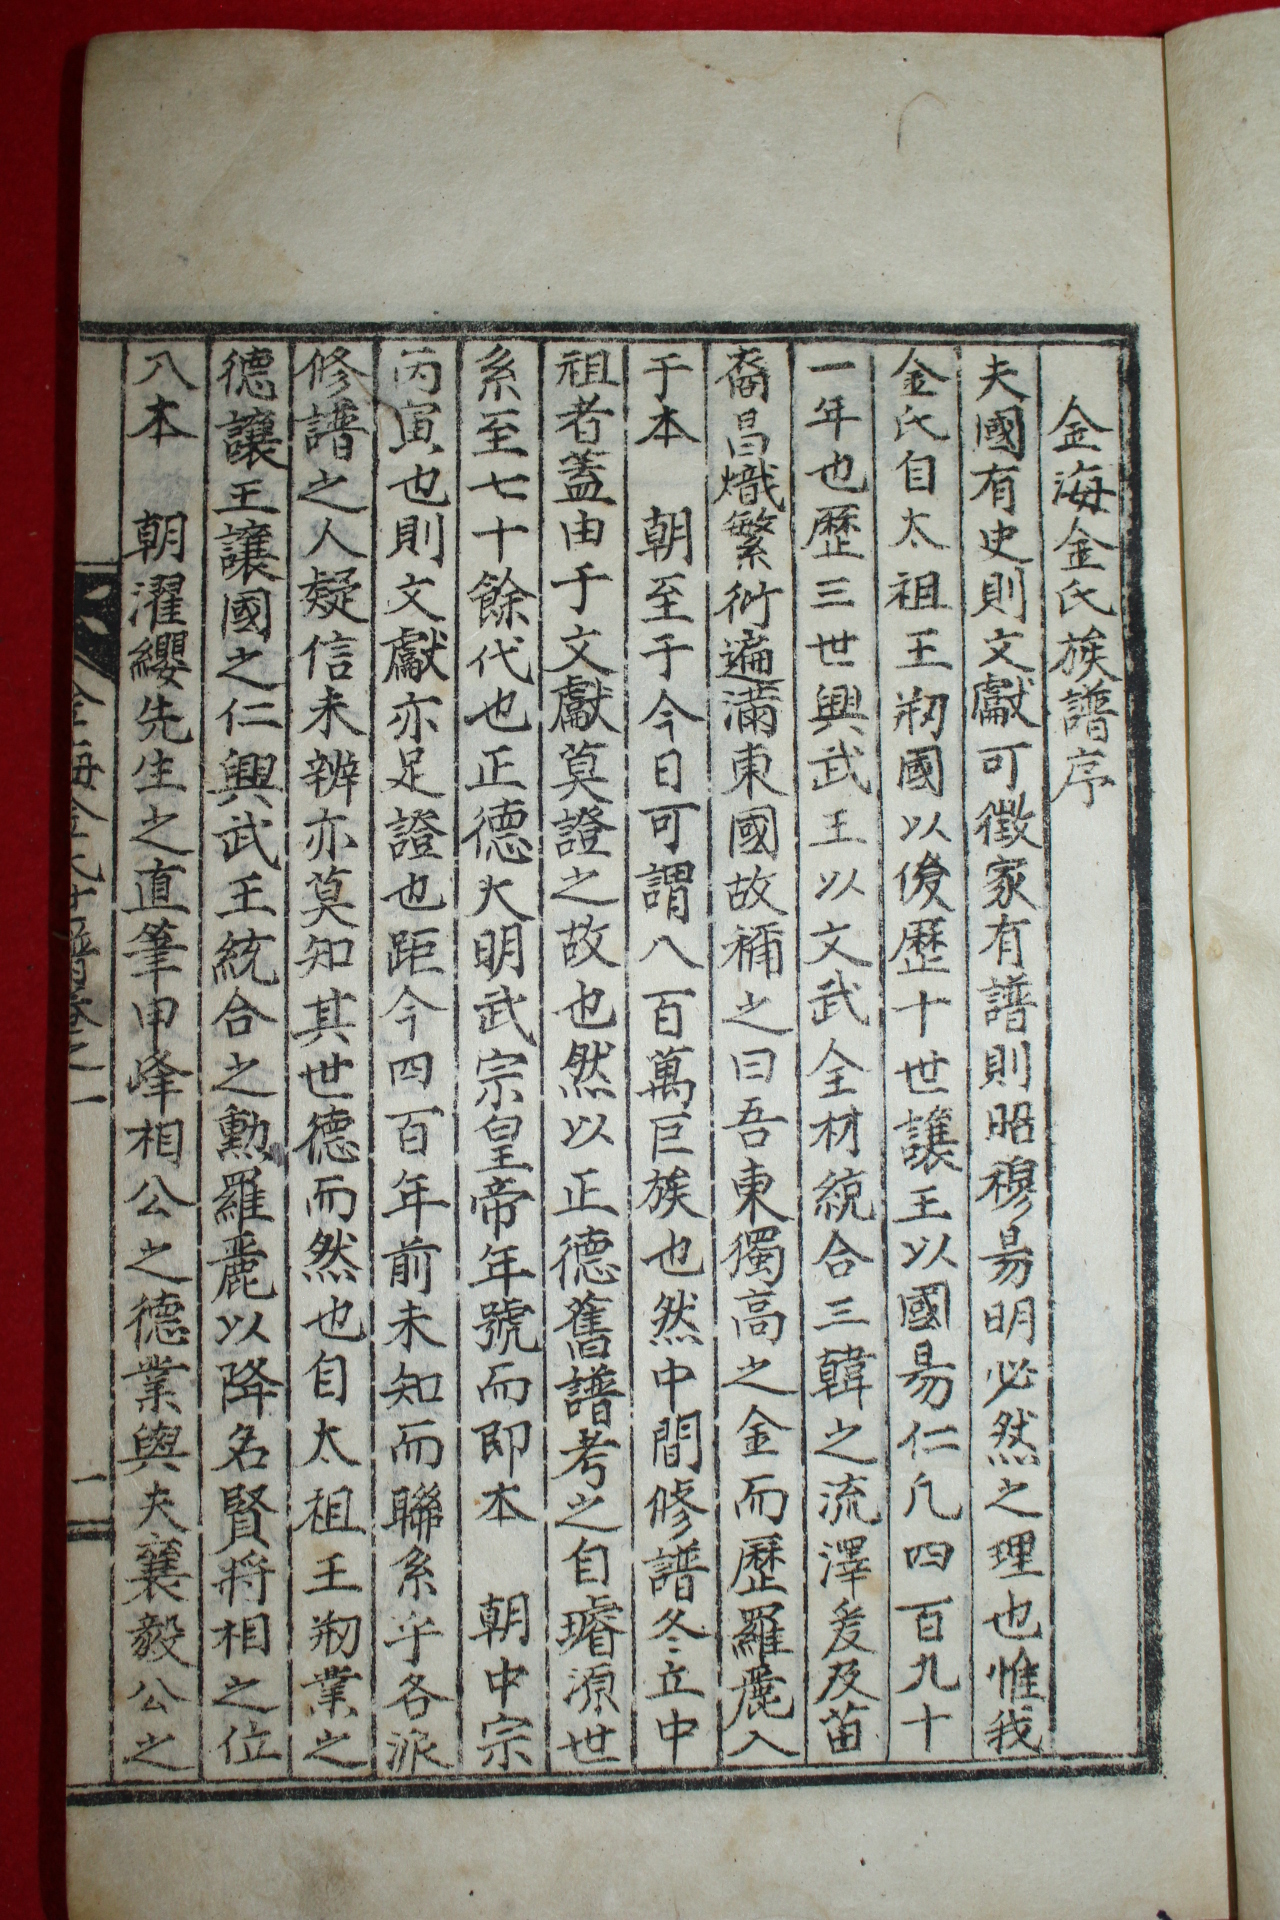 金海金氏族譜序
夫國有史則文獻可徵家有譜則昭穆昜明必然之理也惟我
金氏自太祖王刱國以後歷十世讓王以國昜仁凡四百九十
一年也歷三世興武王以文武全材統合三韓之流澤爰及苗
裔昌熾繁衍遍滿東國故補之曰吾東獨高之金而歷羅麗入
于本　朝至于今日可謂八百萬巨族也然中間修譜冬立中
祖者蓋由于文獻莫證之故也然以正德舊譜考之自璿源世
系至七十餘代也正德大明武宗皇帝年號而即本　朝中宗
丙寅也則文獻亦足證也距今四百年前未知而聯系乎各派
修譜之人疑信未辨亦莫知其世德而然也自太祖王刱業之
德讓王讓國之仁興武王統合之勳羅麗以降名賢將相之位
八本　朝濯纓先生之直筆甲峰相公之德業與夫襄毅公之
金海金氏世譜卷之一
一